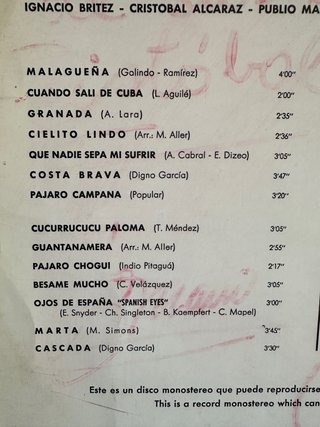 IGNACIO BRITEZ - CRISTOBAL ALCARAZ - PUBLIO MA
MALAGUEÑA (Golindo - Ramírez) 4'00"
CUANDO SALI DE CUBA (L. Aguilé) 2'00"
GRANADA (A. Lara) 2'35"
CIELITO LINDO (Arr.: M. Aller) 2'36"
QUE NADIE SEPA MI SUFRIR (A. Cabral - E. Dizeo) 3'05"
COSTA BRAVA (Digno García) 3'47"
PAJARO CAMPANA (Popular) 3'20"
CUCURRUCUCU PALOMA (T. Méndez) 3'05"
GUANTANAMERA (Arr.: M. Aller) 2'55"
PAJARO CHOGUI (Indio Pitaguá) 2'17"
BESAME MUCHO (C. Velázquez) 3'05"
OJOS DE ESPAÑA "SPANISH EYES" 3'00"
(E. Snyder - Ch. Singleton - B. Koempfert - C. Mapel)
MARTA (M. Simons) 3'45"
CASCADA (Digno García) 3'30"
Este es un disco monostereo que puede reproducirse
This is a record monostereo which can